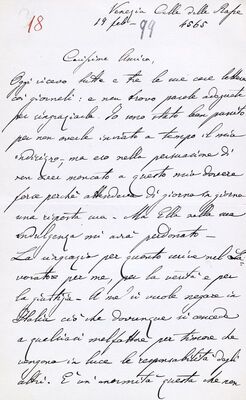 18
Venezia Calle delle Rasse
19 feb.- 99
4565
Carissimo Amico,
Oggi ricevo tutte e tre le sue care lettere
coi giornali: e non trovo parole adeguate
per ringraziarla. Io sono stato ben
per non averle inviato a tempo il mio
indirizzo, ma ero nella persuasione di
non aver mancato a questo mio dovere
forse perchè attendeva di giorno in giorno
una risposta sua. Ma Ella nella sua
indulgenza mi avrà perdonato -
La ringrazio per quanto scrive nel La-
voratore per me, per la verità e per
la giustizia. A me si vuole negare in
Italia ciò che dovunque si concede
a qualsiasi malfattore per timore che
vengano in luce le responsabilità degli
altri. È un'enormità questa che non